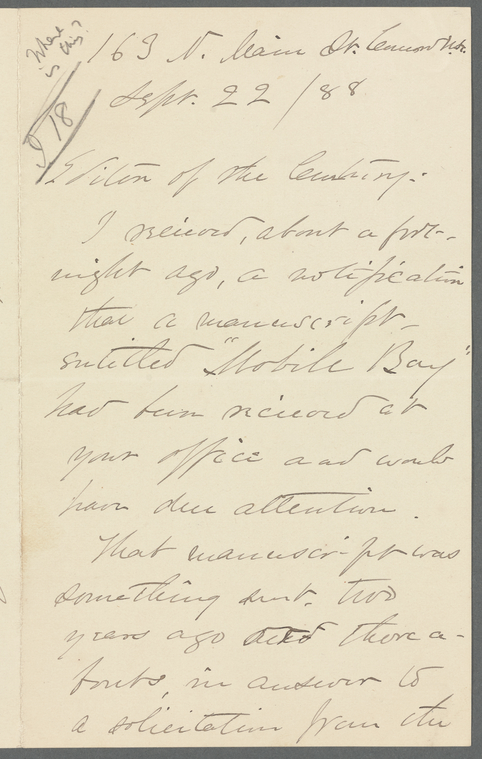 Where
is this?
163 N. Main St. Concord N.H.
Sept. 22 / 88
Editor of the Century:
I received, about a fort-
night ago, a notification
that a manuscript
entitled "Mobile Bay"
had been received at
your office and would
have due attention.
That manuscript was
something sent, two
years ago there a-
bouts, in answer to
a solicitation from the